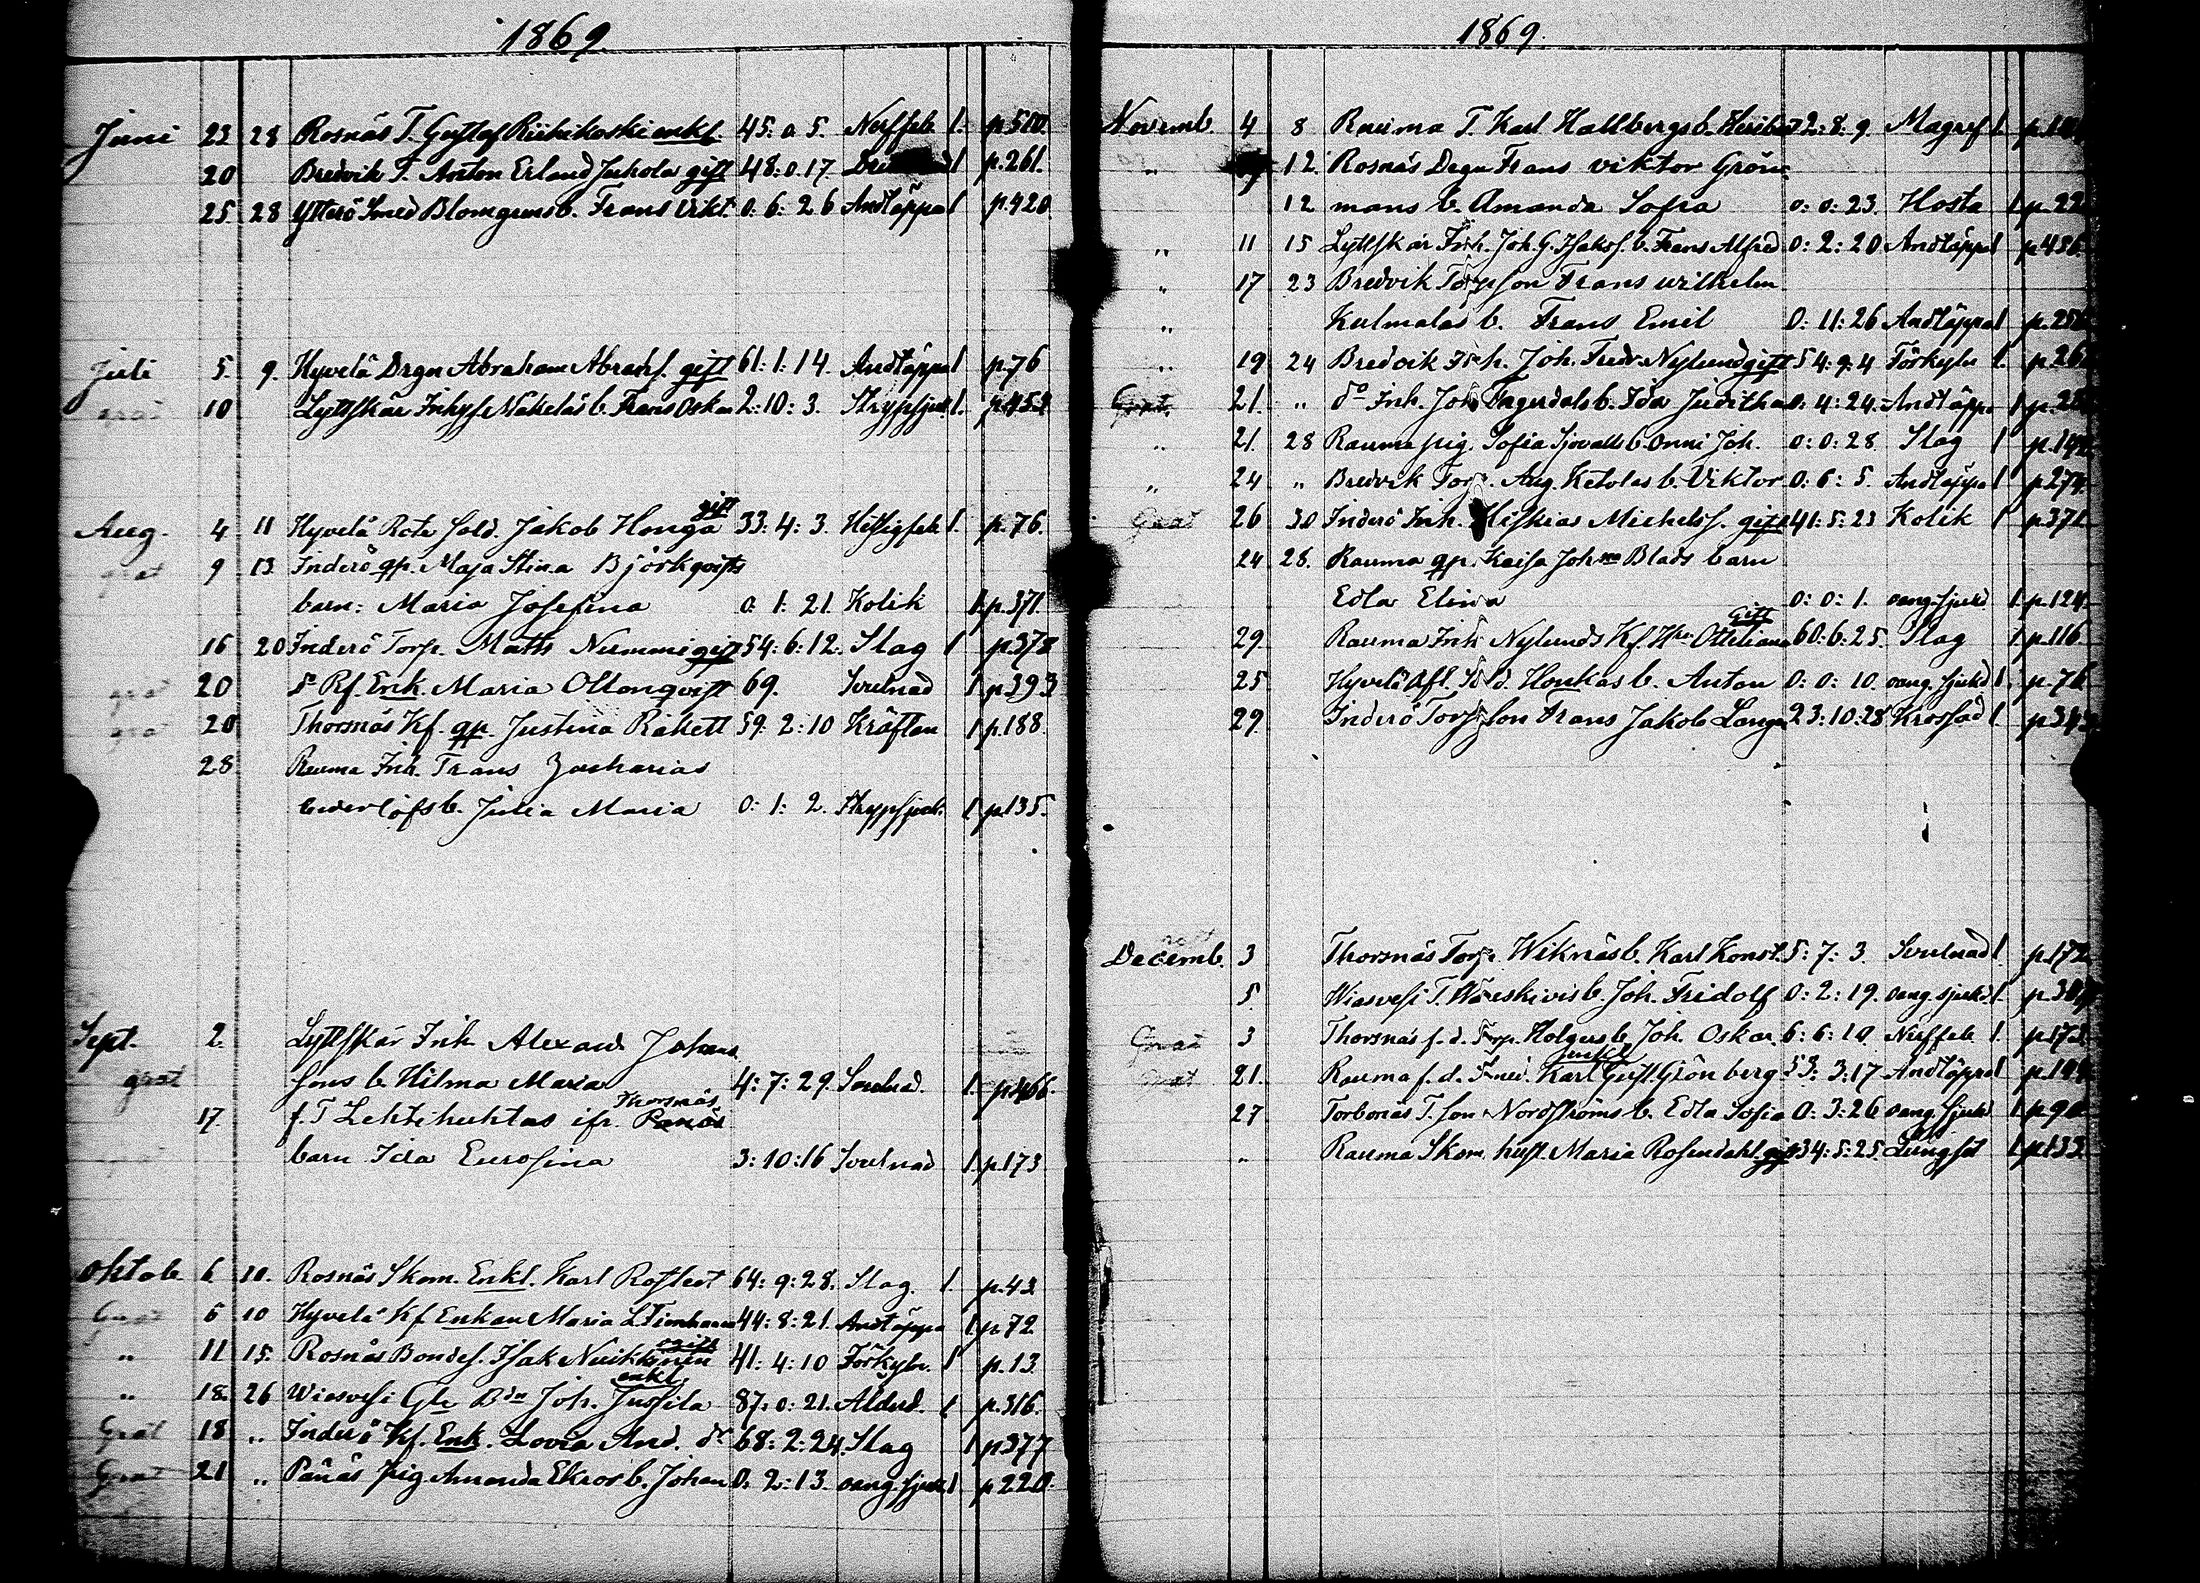 1869.
Juni 23 28 Rosnäs T. Gustaf Riihikoski enkl. 45: 0: 5. Nerffeb 1. p.510
20 Bredvik T. Anton Erland Juhola gift 48: 0: 17. 1 p.261.
25 28 Ytterö Smed Blomgrens b. Frans Vikt. 0: 6: 26 Andtäppa 1 p.420
Juli 5. 9. Hyvelä Drgn Abraham Abrahs. gift 61: 1: 14. Andtäppa 1 p.76
grat 10 Lyttskär Inhys Mäkeläs b. Frans Oskar 2: 10: 3. Strypsjuk 1. p.452
gift
Aug. 4 11 Hyvelä Rote Sold. Jakob Honga 33: 4: 3. Hetsigfeb 1. p.76.
grat 9 13 Inderö qp. Maja Stina Björkqvists
barn: Maria Josefina 0: 1: 21. Kolik 1. p.371.
16 20 Inderö Torp. Matts Nummi gift 54: 6: 12. Slag 1 p.378
grat 20 do Kf. Enk. Maria Ollonqvist 69. Svulnad 1 p.393
grat 20 Thorsnäs Kf. qp. Justina Rakett 59: 2: 10 Kräftan 1 p.188.
28 Rauma Inh. Frans Zacharias
Cederlöfs b. Julia Maria 0: 1: 2. Strypsjuk. 1 p.135.
Sept. 2 Lyttskär Inh Alexand. Johans
grat sons b Hilma Maria 4: 7: 29. Svulnad. 1. p.466.
Thorsnäs
17. f. T Lehtihuhtas ifr. Panäs
barn Ida Eurosina 3: 10: 16 Svulnad 1 p.173
Oktob 6 10. Rosnäs Skom. Enkl. Karl Rostedt 64: 9: 28. Slag. 1. p.43
Grat 6 10 Hyvelä Kf Enkan Maria L. 44: 8: 21. Andtäppa 1 p.72.
gift
" 11 15. Rosnäs Bondes. Isak Nuikkinen 41: 4: 10 Förkyln. 1 p.13.
enkl.
" 18. 26 Wiasvesi Gle Bdn Joh. Jussila 87: 0: 21. Alderd. 1 p.316.
Grat 18 " Inderö Kf. Enk. Lovia And. dr 68: 2: 24. Slag 1 p.377
Grat 21 " Panäs pig Amanda Ekros b. Johan 0: 2: 13. oang. sjuk. 1 p.220.
1869.
Novemb. 4 8 Rauma T. Karl Hallbergs b. Heribert 2: 8: 9. Magref 1.
" 12 Rosnäs Dragn Frans Viktor Grön-
12 mans b. Amanda Sofia 0: 0: 23. Hosta 1 p.22
" 11 15 Lyttskär Inh. Joh. G. Isaks. b. Frans Alfred 0: 2: 20. Andtäppa 1 p.456.
" 17 23 Bredvik Torpson Frans Wilhelm
" Kulmalas b. Frans Emil 0: 11: 26 Andtäppa 1 p.256
" 19 24 Bredvik Inh. Joh. Fredr. Nylund gift 54: 9: 4 Förkyln 1. p.26
Grat. 21. " do Inh. Joh Fagerdals b. Ida Juditha 0: 4: 24. Andtäpp 1 p.2
" 21. 28 Rauma pig. Sofia Sjövalls b. Onni Joh. 0: 0: 28. Slag 1 p.142
" 24 " Bredvik Torp. Aug. Ketolas b. Viktor 0: 6: 5. Andtäppa 1 p.274
Grat 26 30 Inderö Inh. Hiskias Michelss. gift 41: 5: 23 Kolik 1 p.371
24 28. Rauma qp. Kaisa Johna Blads barn
Edla Elina 0: 0: 1. oang. sjukd 1 p.124.
Gift
29. Rauma Inh Nylunds Kf. Hu Ottiliana 60: 6: 25. Slag 1 p.116.
25 Hyvelä Afl. Sold. Honkas b. Anton 0: 0: 10. oang. sjukd 1. p.76
29. Inderö Torp. son Frans Jakob Lang 23: 10: 28 Krossad 1. p.343
Decemb. 3 Thorsnäs Torp. Wiknäs b. Karl Konst. 5: 7: 3. Svulnad 1. p.172
5 Wiasvesi T. b. Joh. Fridolf 0: 2: 19. oang. sjukd. 1.
Grat 3 Thorsnäs f. d. Torp. Holgers b. Joh. Oskar. 6: 6: 10 Nerffeb 1. p.173
enkl
Grat 21. Rauma f. d. Smed. Karl Gust. Grönberg 53: 3: 17 Andtäppa 1 p.144
27 Torbonäs T. son Nordströms b. Edla Sofia 0: 3: 26 oang. sjukd. 1 p.90
" Rauma Skom. hust. Maria Rosendahl gift 34: 5: 25. Lungsot 1 p.133